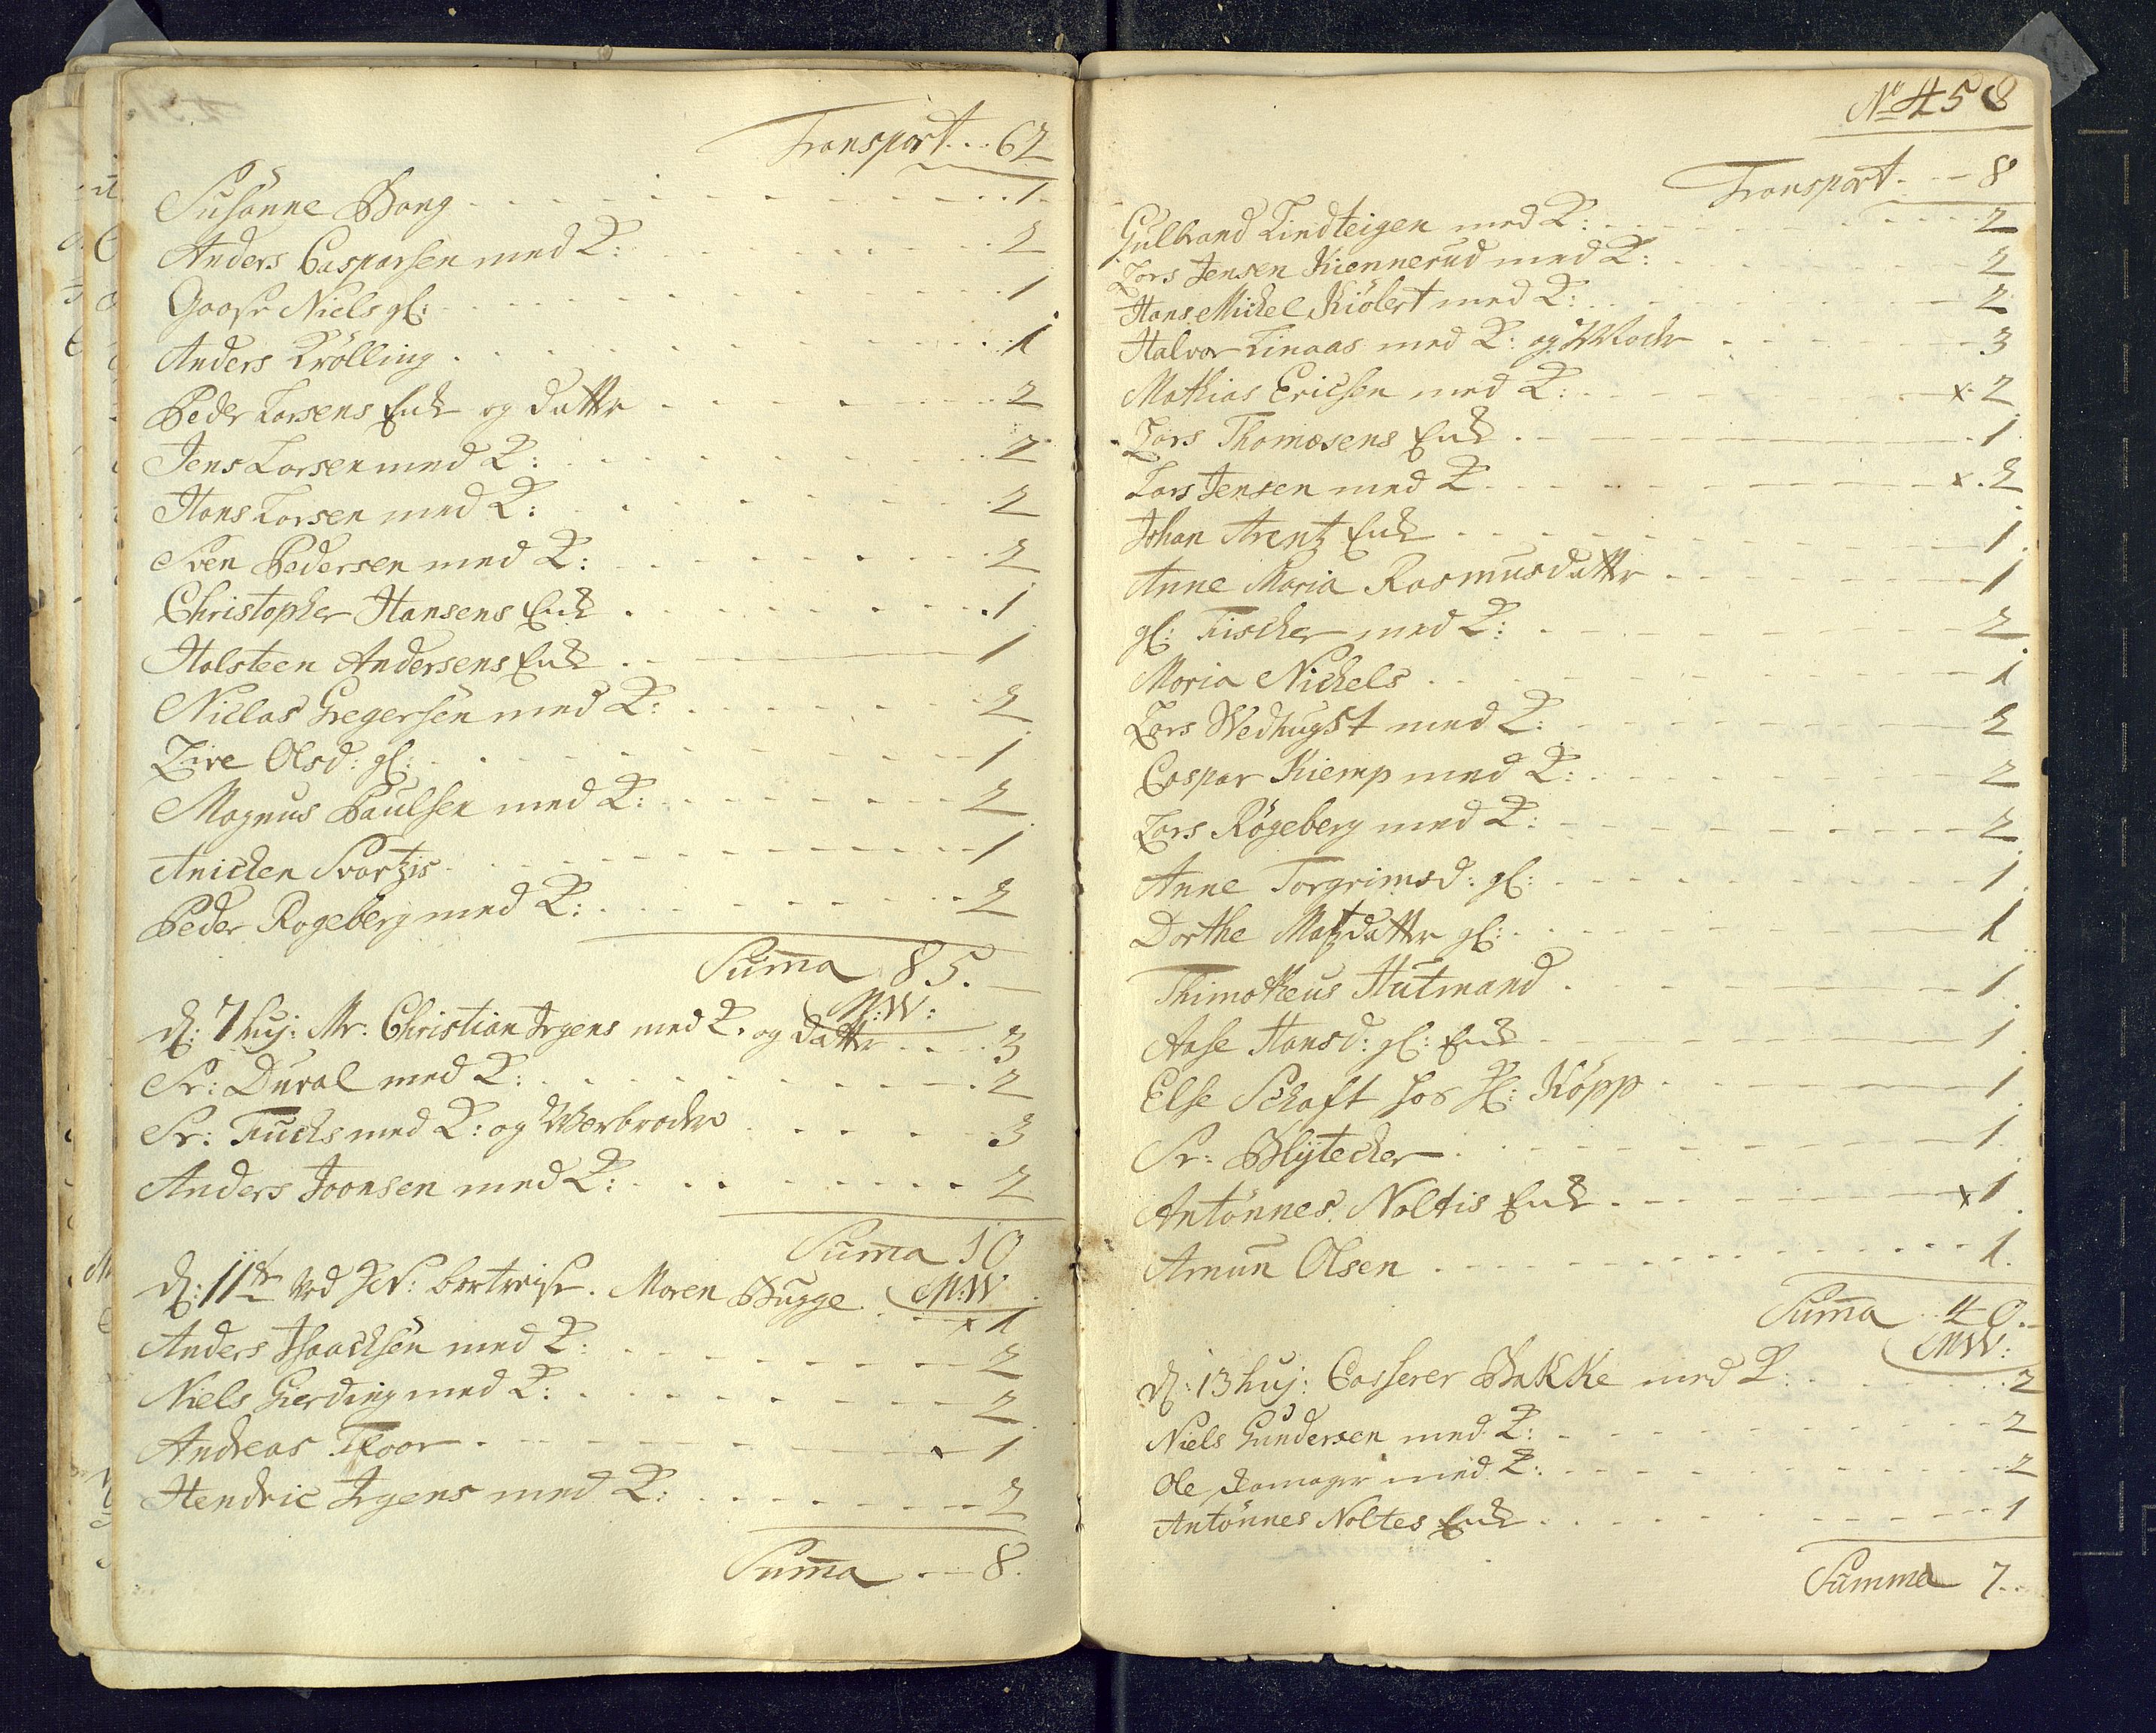 Transport... 62
Susanne Bang 1
Anders Casparsen med K: 2
Goose Niels gl: 1
Anders Krölling 1
Peder Larsens Enke og datter 2
Jens Larsen med K: 2
Hans Larsen med K: 2
Sven Pedersen med K: 2
Christopher Hansens Enke 1
Holsteen Andersens Enke 1
Niclas Gregersen med K: 2
Live Olsd: gl: 1
Magnus Paulsen med K: 2
Anichen Svartzis 1
Peder Rogeberg med K: 2
Summa 85.
M:W:
d: 7 huj: Mr: Christian Irgens med K. og datter 3
Sr: Dural med K: 2
Sr: Fuchs med K: og Værbroder 3
Anders Joonsen med K: 2
Summa 10
M:W
d: 11te ved Hr: bortreise. Maren Bugge x 1
Anders Isaachsen med K: 2
Niels Gierding med K: 2
Andreas Floor 1
Hendric Irgens med K: 2
Summa 8.
No 458
Transport 8
Gulbrand Lindteigen med K: 2
Lars Jensen Kiennerud med K: 2
Hans Michel Kiölert med K: 2
Halvor Linaas med K: og Moder 3
Mathias Ericsen med K: x 2
Lars Thomæsens Enke 1
Lars Jensen med K x 2
Johan Arentz Enke 1
Anne Maria Rasmusdatter 1
gl: Fischer med K: 2
Maria Nickels 1
Lars Wedhugst med K: 2
Caspar Kiemp med K: 2
Lars Rögeberg med K: 2
Anne Torgrimsd: gl: 1
Dorthe Matzdatter gl: 1
Thimotheus Hutmand 1
Aase Hansd: gl: Enke 1
Else Schaft hos Hl: Köpp 1
Sr: Blÿtecher 1
Antönnes Noltis Enke x 1
Amun Olsen 1.
Summa 40.
MW:
d: 13 huj: Casserer Bakke med K: 2
Niels Gundersen med K: 2
Ole med K: 2
Antönnes Noltes Enke 1
Summa 7.